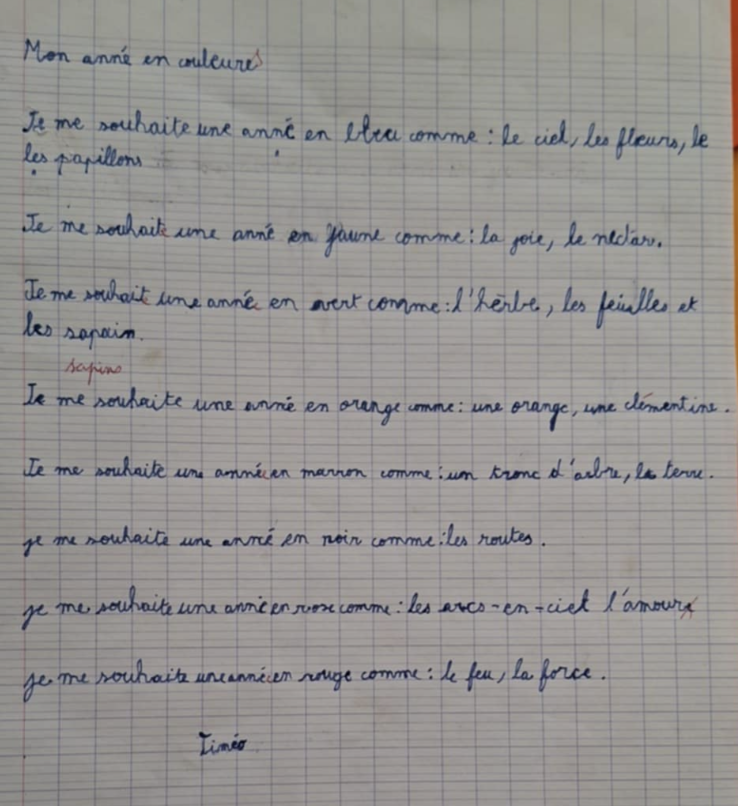 Mon anné en couleures
Je me souhaite une anné en bleu comme : le ciel, les fleurs, le
les papillons
Je me souhaite une anné en jaune comme : la joie, le nectar.
Je me souhait une anné en vert comme : l'herbe, les feuilles et
les sapain.
sapins
Je me souhaite une anné en orange comme : une orange, une clémentine.
Je me souhaite une année en marron comme : un tronc d'arbre, la terre.
je me souhaite une anné en noir comme : les routes.
je me souhaite une année en rose comme : les arcs-en-ciel l'amour
je me souhaite une année en rouge comme : le feu, la force.
Timéo